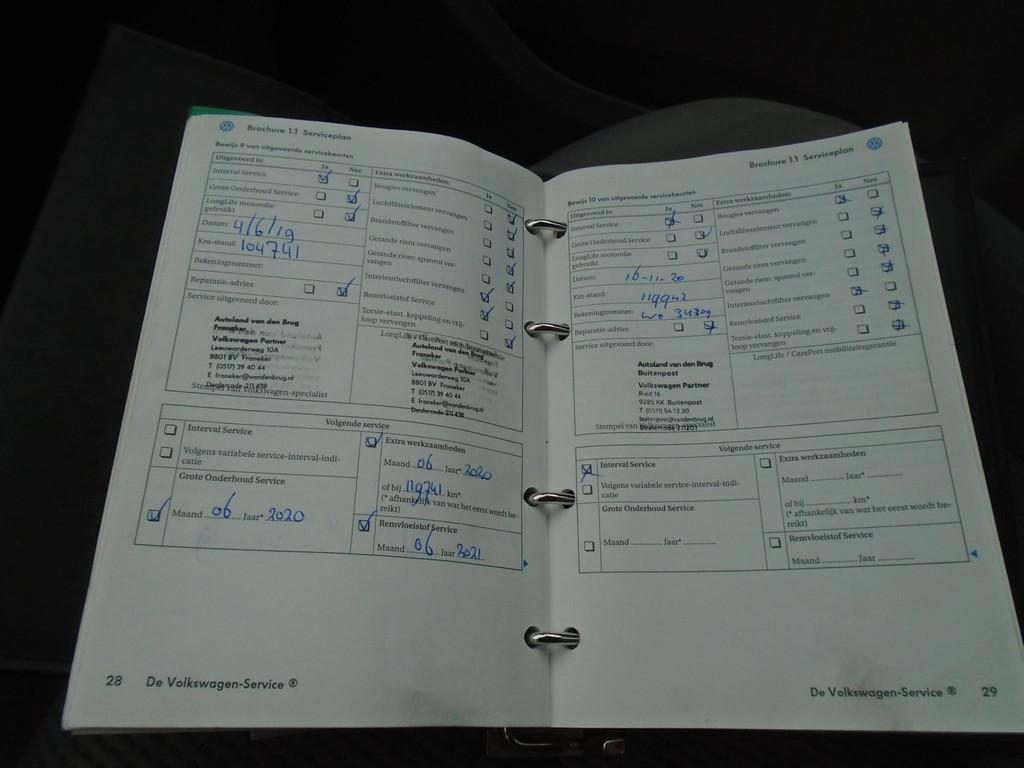 Brochure 1.1 Serviceplan
Bewijs 9 van uitgevoerde servicebeurten
Uitgevoerd is: Ja Nee
Interval Service
Grote Onderhoud Service
LongLife motorolie
gebruikt
Datum: 4/6/19
Km-stand: 104741
Rekeningnummer:
Reparatie-advies
Service uitgevoerd door:
Autoland van den Brug
Franeker
Volkswagen Partner
Leeuwarderweg 10A
8801 BV Franeker
T (0517) 39 40 44
E franeker@vandenbrug.nl
Dealercode 211.438
Stempel van Volkswagen-specialist
Extra werkzaamheden: Ja Nee
Bougies vervangen
Luchtfilterelement vervangen
Brandstoffilter vervangen
Getande riem vervangen
Getande riem: spanrol ver-
vangen
Interieurluchtfilter vervangen
Remvloeistof Service
Torsie-elast. koppeling en vrij-
loop vervangen
LongLife / CarePort
Autoland van den Brug
Franeker
Volkswagen Partner
Leeuwarderweg 10A
8801 BV Franeker
T (0517) 39 40 44
E franeker@vandenbrug.nl
Dealercode 211.438
Volgende service
Interval Service
Volgens variabele service-interval-indi-
catie
Grote Onderhoud Service
Maand 06 Jaar* 2020
Extra werkzaamheden
Maand 06 Jaar* 2020
of bij 119741 km*
(* afhankelijk van wat het eerst wordt be-
reikt)
Remvloeistof Service
Maand 06 Jaar 2021
28 De Volkswagen-Service ®
Brochure 1.1 Serviceplan
Bewijs 10 van uitgevoerde servicebeurten
Uitgevoerd is: Ja Nee
Interval Service
Grote Onderhoud Service
LongLife motorolie
gebruikt
Datum: 16-11-20
Km-stand: 119942
Rekeningnummer: WO
Reparatie-advies
Service uitgevoerd door:
Autoland van den Brug
Buitenpost
Volkswagen Partner
Ried 16
9285 KK Buitenpost
T. (0511) 54 13 30
buitenpost@vandenbrug.nl
Dealercode 211201
Stempel van Volkswagen-specialist
Extra werkzaamheden: Ja Nee
Bougies vervangen
Luchtfilterelement vervangen
Brandstoffilter vervangen
Getande riem vervangen
Getande riem: spanrol ver-
vangen
Interieurluchtfilter vervangen
Remvloeistof Service
Torsie-elast. koppeling en vrij-
loop vervangen
LongLife / CarePort mobiliteitsgarantie
Volgende service
Interval Service
Volgens variabele service-interval-indi-
catie
Grote Onderhoud Service
Maand ............ Jaar* ............
Extra werkzaamheden
Maand ............ Jaar* ............
of bij ............ km*
(* afhankelijk van wat het eerst wordt be-
reikt)
Remvloeistof Service
Maand ............ Jaar ............
De Volkswagen-Service ® 29